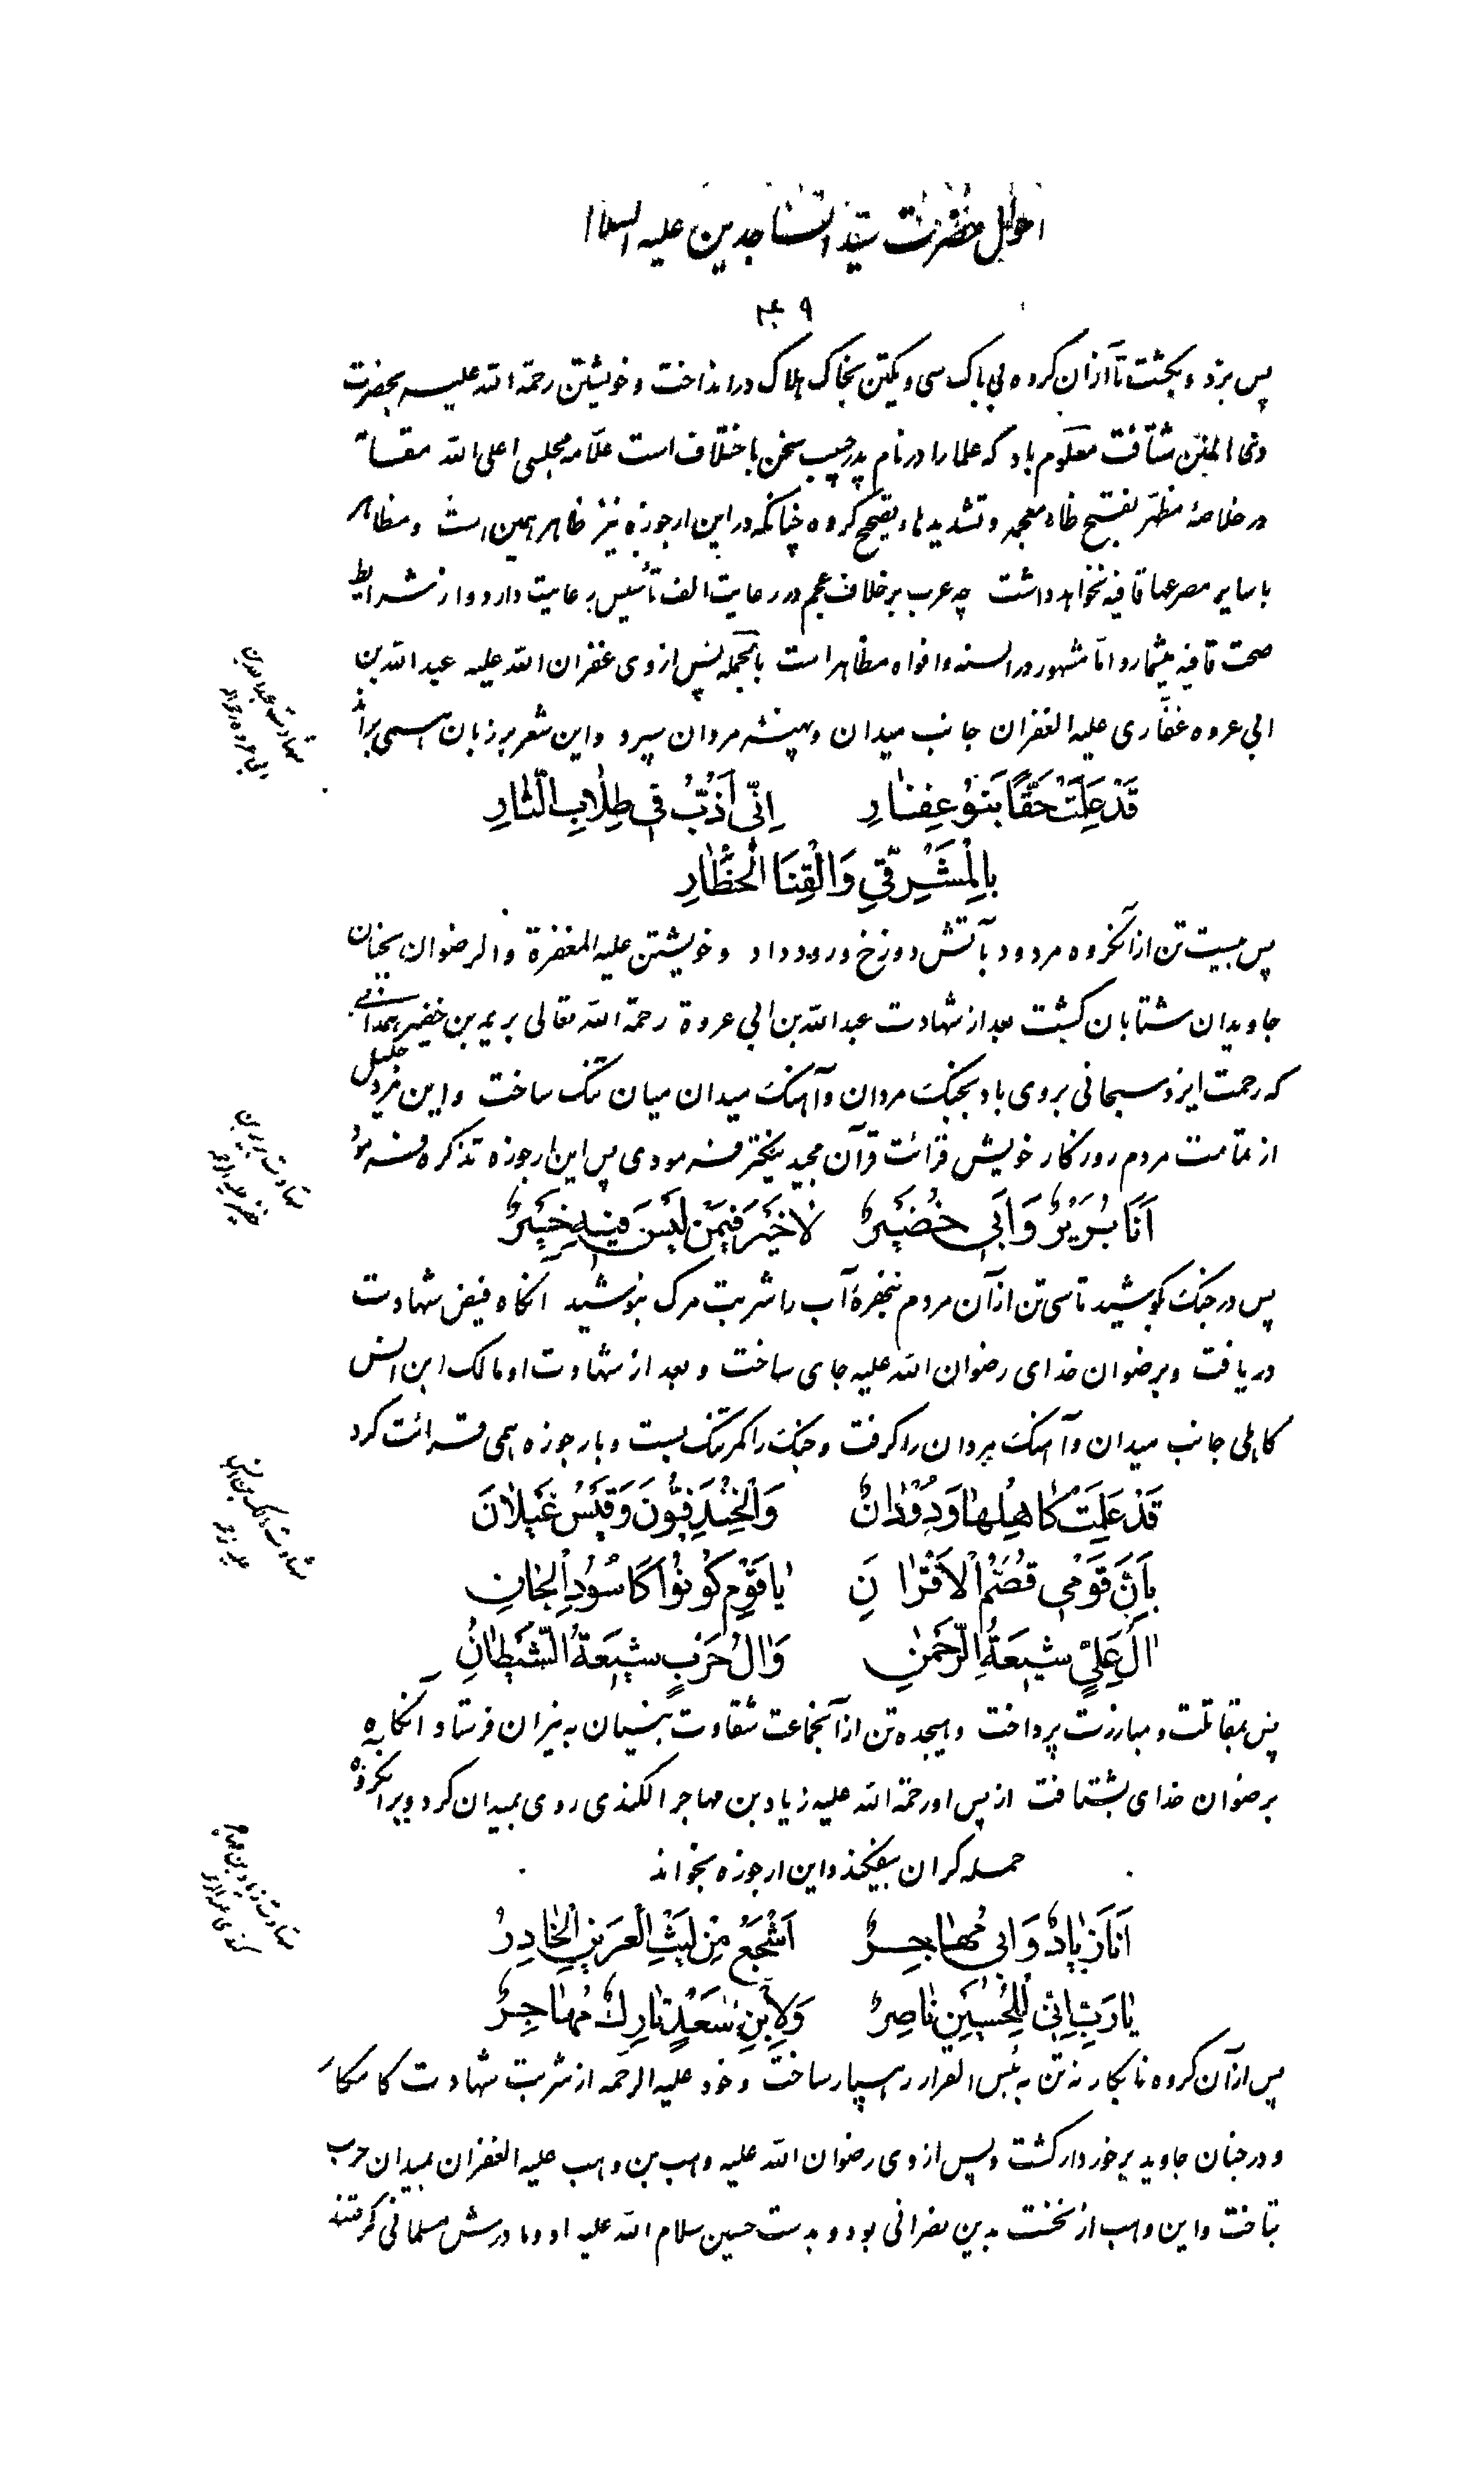 احوال حضرت سیّد السّاجدین علیه السلام
پس بزد و بکشت تا از آن گروه بی باک سی و یکتن بخاک هلاک در انداخت و خویشتن رحمة الله علیه بحضرت
ذی المنن شتافت معلوم باد که علما را در نام پدر حبیب سخن باختلاف است علّامه مجلسی اعلی الله مقامه
در خلاصهٔ مظهّر بفتح ظاء معجمه و تشدید هاء تصحیح کرده چنانکه در این ارجوزه نیز ظاهر همین است و مظاهر
با سایر مصرعها قافیه نخواهد داشت چه عرب بر خلاف عجم در رعایت الف تأسیس رعایت دارد و از شرایط
صحت قافیه میشمارد و امّا مشهور در السنه و افواه مظاهر است بالجمله پس از وی غفران الله علیه عبد الله بن
ابی عروه غفّاری علیه الغفران جانب میدان و پهنه مردان سپرد و این شعر بر زبان همی براند
قَدْ عَلِمَتْ حَقًّا بَنُو غِفٰارِ اِنّی اَذُبُّ فی طِلٰابِ الثّٰارِ
بِالْمَشْرِفّیِ وَالْقِنَا الْخَطّٰارِ
پس بیست تن از آنگروه مردود بآتش دوزخ درود داد و خویشتن علیه المغفرة و الرضوان بجنان
جاویدان شتابان گشت بعد از شهادت عبد الله بن ابی عروة رحمة الله تعالی بریر بن خضیر همدانی
که رحمت ایزد سبحانی بروی باد بجنگ مردان و آهنگ میدان میان تنگ ساخت و این مرد جلیل
از تمامت مردم روزگار خویش قرائت قرآن مجید نیکوتر فرمودی پس این ارجوزه تذکره فرمود
اَنَا بُرَیْرٌ وَاَبی خُضَیْرٌ لٰا خَیْرَ فیمَنْ لَیْسَ فیهِ خَیْرٌ
پس در جنگ بکوشید تا سی تن از آن مردم خنجرهٔ آب را شربت مرگ بنوشید آنگاه فیض شهادت
دریافت و برضوان خدای رضوان الله علیه جای ساخت و بعد از شهادت او مالک ابن انس
کاهلی جانب میدان و آهنگ مردان را گرفت و جنگ را کمر تنگ بست و بارجوزه همی قرائت کرد
قَدْ عَلِمَتْ کٰاهِلُهٰا وَدُوْدٰانُ وَالْخِنْدِفِیُّونَ وَقَیْسُ غَیْلٰانَ
بِاَنَّ قَوْمی قُصَمُ الْاَقْرٰانِ یٰا قَوْمِ کُونُوا کَاُسُوْدِ الْجٰانِ
اٰلُ عَلِیٍّ شیعَةُ الرَّحْمٰنِ وَاٰلُ حَرْبٍ شیعَةُ الشَّیْطٰانِ
پس بمقاتلت و مبارزت پرداخت و هیجده تن از آنجماعت شقاوت بنیان به نیران فرستاد آنگاه
برضوان خدای بشتافت از پس او رحمة الله علیه زیاد بن مهاجر الکندی روی بمیدان کرد و بر آنگروه
حمله گران بیفکند و این ارجوزه بخواند
اَنَا زِیٰادٌ وَاَبی مُهٰاجِرٌ اَشْجَعُ مِنْ لَیْثِ الْعَرینِ الْخٰادِرُ
یٰا رَبِّ اِنّی لِلْحُسَیْنِ نٰاصِرٌ وَلِابْنِ سَعْدٍ تٰارِكٌ مُهٰاجِرٌ
پس از آن گروه نابکار نه تن به بئس القرار رهسپار ساخت و خود علیه الرحمه از شربت شهادت کامکار
و در جنان جاوید برخوردار گشت و پس از وی رضوان الله علیه وهب بن وهب علیه الغفران بمیدان حرب
بتاخت و این وهب از نخست بدین نصرانی بود و بدست حسین سلام الله علیه او و مادرش مسلمانی گرفتند